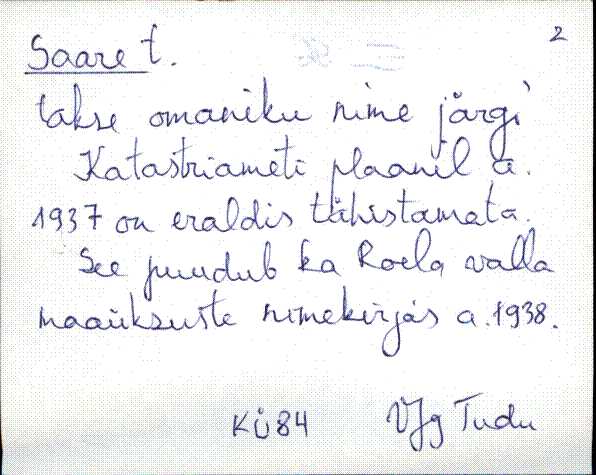 2
Saare t.
takse omaniku nime järgi
Katastriameti plaanil a.
1937 on eraldis tähistamata.
See puudub ka Roela valla
maaüksuste nimekirjas a. 1938.
KÜ84 VJg Tudu